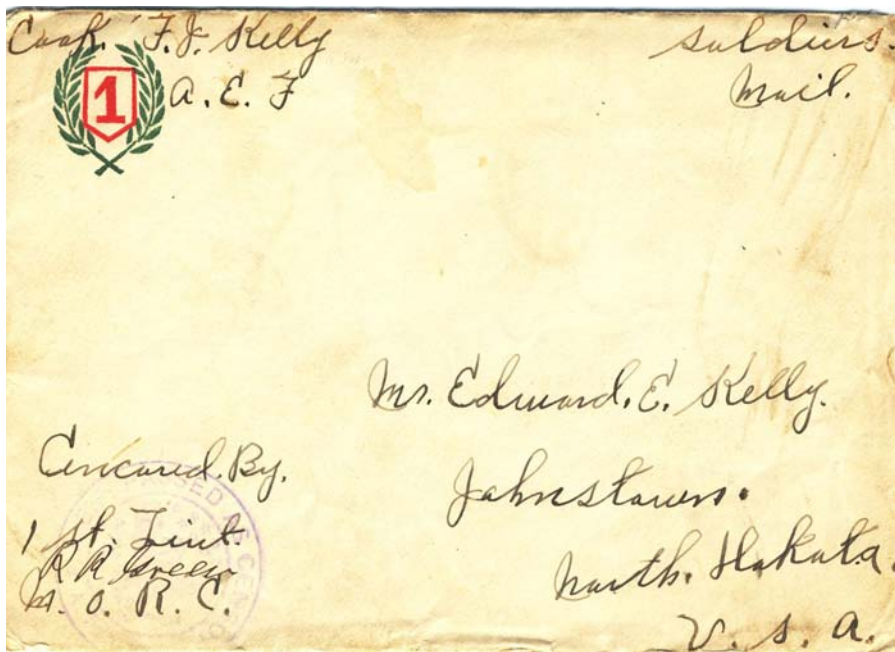 Cook. F.J. Kelly
A. E. F
Soldiers.
Mail.
1
Mr. Edward. E. Kelly.
Johnstown.
North. Dakota.
U. S. A.
Cencored. By.
1 st. Lint.
R R Green
M. O. R. C.
SED AS CEN